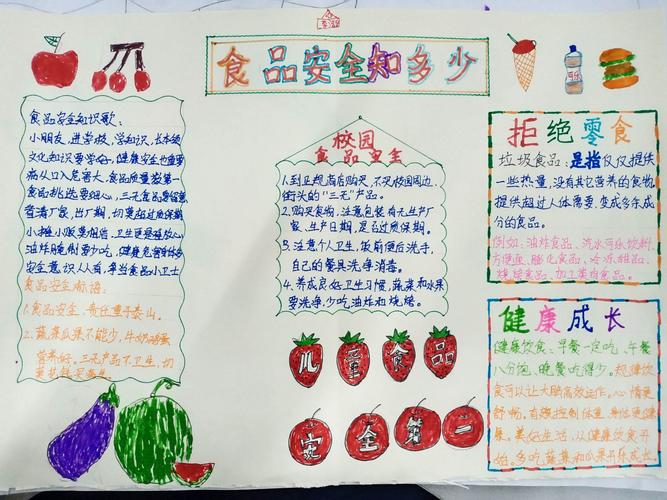 食品安全知多少
食品安全知识歌：
小朋友，进学校，学知识，长本领
文化知识要学好，健康安全也重要
病从口入危害大，食品质量数第一
食品挑选要细心，三无食品要留意
看清厂家，出厂期，切莫超过保质期
小摊小贩莫惹启，卫生更是难放心
油炸腌制要少吃，健康危害
安全意识人人有，争当食品小卫士
食品安全标语：
1.食品安全，责任重于泰山。
2.蔬菜瓜果不能少，牛奶鸡蛋
营养好。三无产品不卫生，切
校园
食品安全
1.到正规商店购买，不买校园周边、
街头的“三无”产品。
2.购买食物，注意包装有无生产厂
家、生产日期，是否过质保期。
3.注意个人卫生，饭前便后洗手，
自己的餐具洗净消毒。
4.养成良好卫生习惯，蔬菜和水果
要洗净，少吃油炸和烧烤。
儿童食品
安全第一
拒绝零食
垃圾食品：是指仅仅提供
一些热量，没有其它营养的食物，
提供超过人体需要，变成多余成
分的食品。
例如：油炸食品、汽水可乐饮料、
方便面、膨化食品、冷冻甜品、
烧烤食品、加工类肉食品。
健康成长
健康饮食、早餐一定吃、午餐
八分饱、晚餐吃得少。规律饮
食可以让大脑高效运作。心情更
舒畅。有效控制体重，身体更健
康。美好生活，从健康饮食开
始。多吃蔬菜和瓜果开成长。